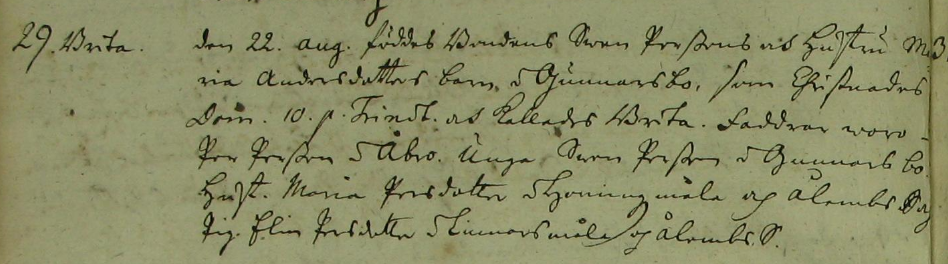 29. Brita. den 22. aug. föddes Bondens Swen Perssons ok Hustru Ma
ria Andersdotters barn i Gunnarsbo, som Christnades
Dom. 10. p. Trinit. ok kallades Brita. Faddrar woro
Per Persson i Åbro. Unga Swen Persson i Gunnarsbo.
Hust. Maria Persdotter i Honungmåla og Ålembs S og
Pig. Elin Persdotter i Linnersmåla og Ålembs. S.